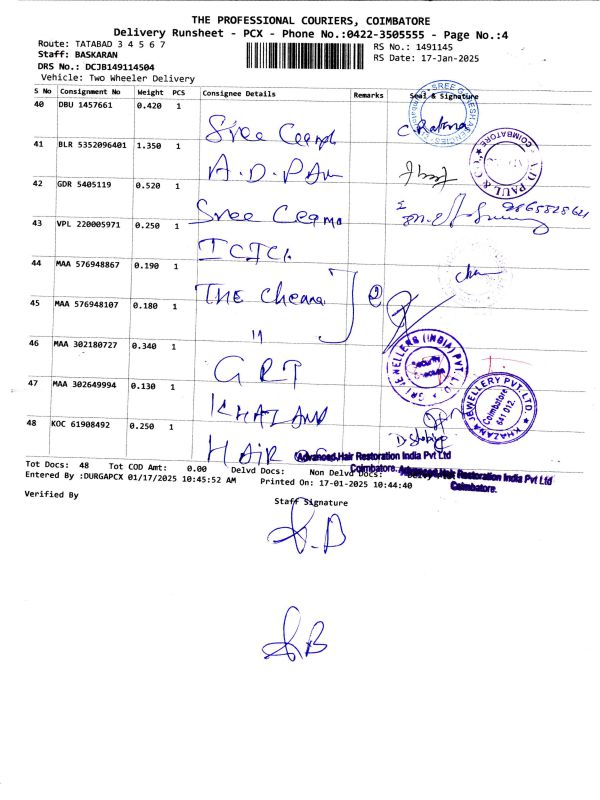 THE PROFESSIONAL COURIERS, COIMBATORE
Delivery Runsheet - PCX - Phone No.:0422-3505555 - Page No.:4
Route: TATABAD 3 4 5 6 7
Staff: BASKARAN
DRS No.: DCJB149114504
Vehicle: Two Wheeler Delivery
RS No.: 1491145
RS Date: 17-Jan-2025
S No Consignment No Weight PCS Consignee Details Remarks Seal & Signature
40 DBU 1457661 0.420 1 Sree
41 BLR 5352096401 1.350 1 A.D.PAUL
42 GDR 5405119 0.520 1 Sree
43 VPL 220005971 0.250 1 ICICI
44 MAA 576948867 0.190 1 THE Chennai
45 MAA 576948107 0.180 1 "
46 MAA 302180727 0.340 1 GRT
47 MAA 302649994 0.130 1 KHAZANA
48 KOC 61908492 0.250 1 HAIR
C Rathna
COIMBATORE
9865828621
JEWELLERS (INDIA) PVT. LTD
Security
KHAZANA JEWELLERY PVT. LTD.
Coimbatore
641 012.
Advanced Hair Restoration India Pvt Ltd
Coimbatore.
Advanced Hair Restoration India Pvt Ltd
Coimbatore.
Tot Docs: 48 Tot COD Amt: 0.00 Delvd Docs: Non Delvd Docs:
Entered By :DURGAPCX 01/17/2025 10:45:52 AM Printed On: 17-01-2025 10:44:40
Verified By
Staff Signature